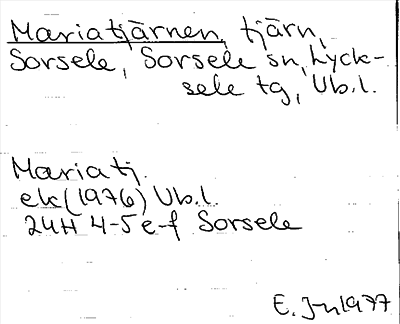 Mariatjärnen, tjärn,
Sorsele, Sorsele sn, Lyck-
sele tg, Vb.l.
Mariatj.
ek (1976) Vb.l.
24H 4-5 e-f Sorsele
E. Jn 1977